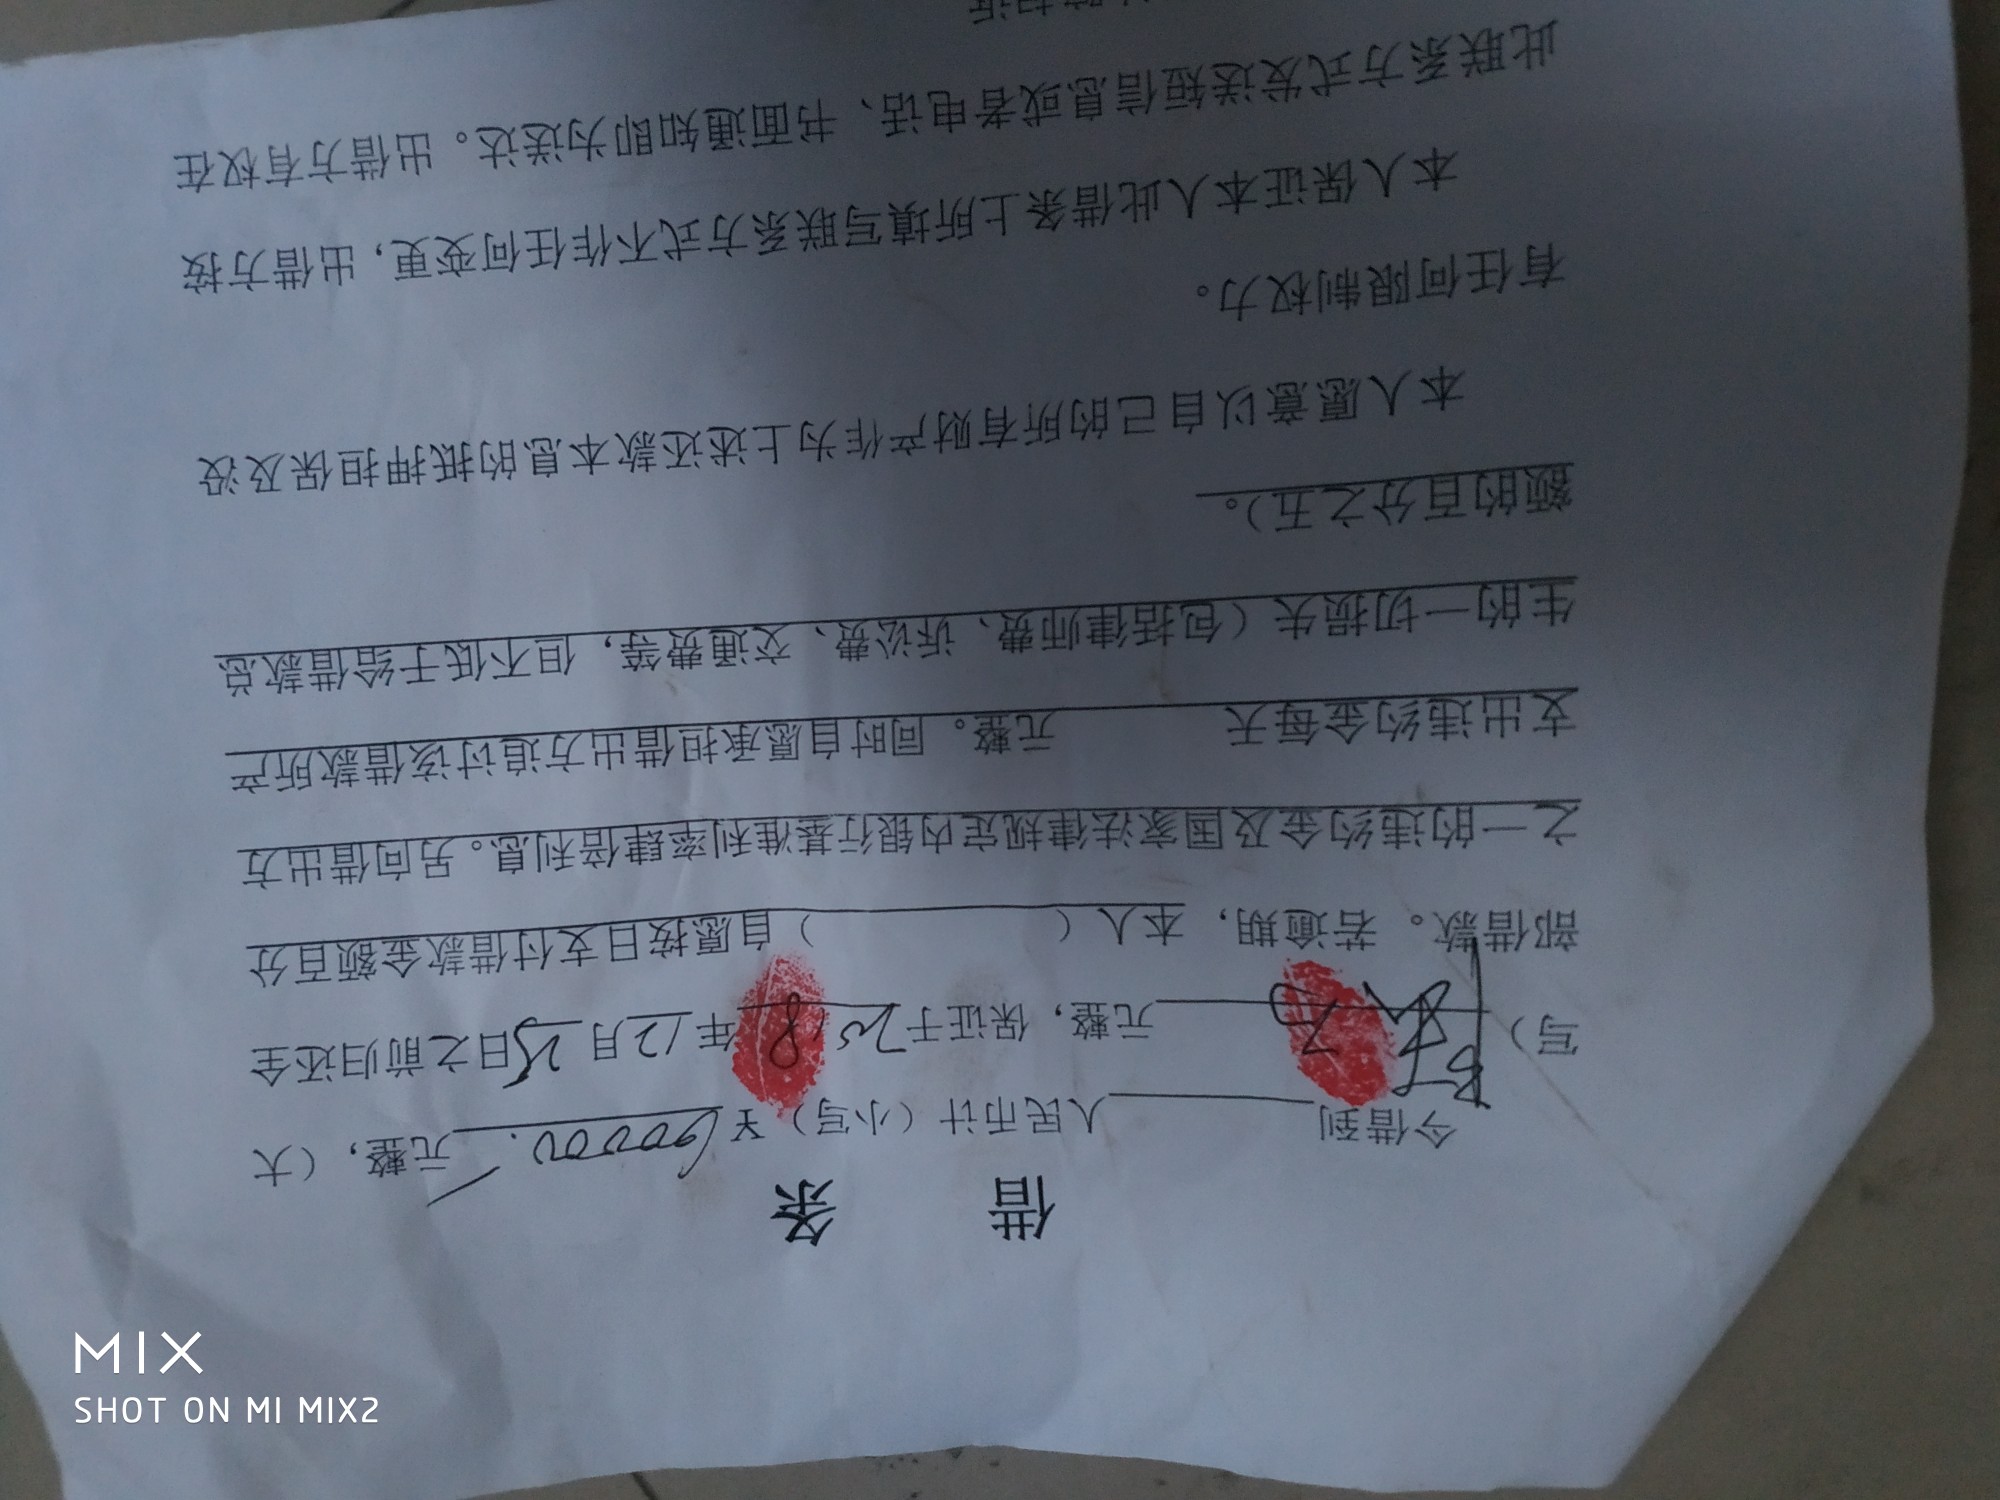 借 条
今借到 人民币计（小写）￥60000. 元整，（大
写） 元整，保证于2018年12月25日之前归还全
部借款。若逾期，本人（ ）自愿按日支付借款金额百分
之一的违约金及国家法律规定内银行基准利率肆倍利息。另向借出方
支出违约金每天 元整。同时自愿承担借出方追讨该借款所产
生的一切损失（包括律师费、诉讼费、交通费等，但不低于给借款总
额的百分之五）。
本人愿意以自己的所有财产作为上述还款本息的抵押担保及没
有任何限制权力。
本人保证本人此借条上所填写联系方式不作任何变更，出借方按
此联系方式发送短信息或者电话、书面通知即为送达。出借方有权在
MIX
SHOT ON MI MIX2